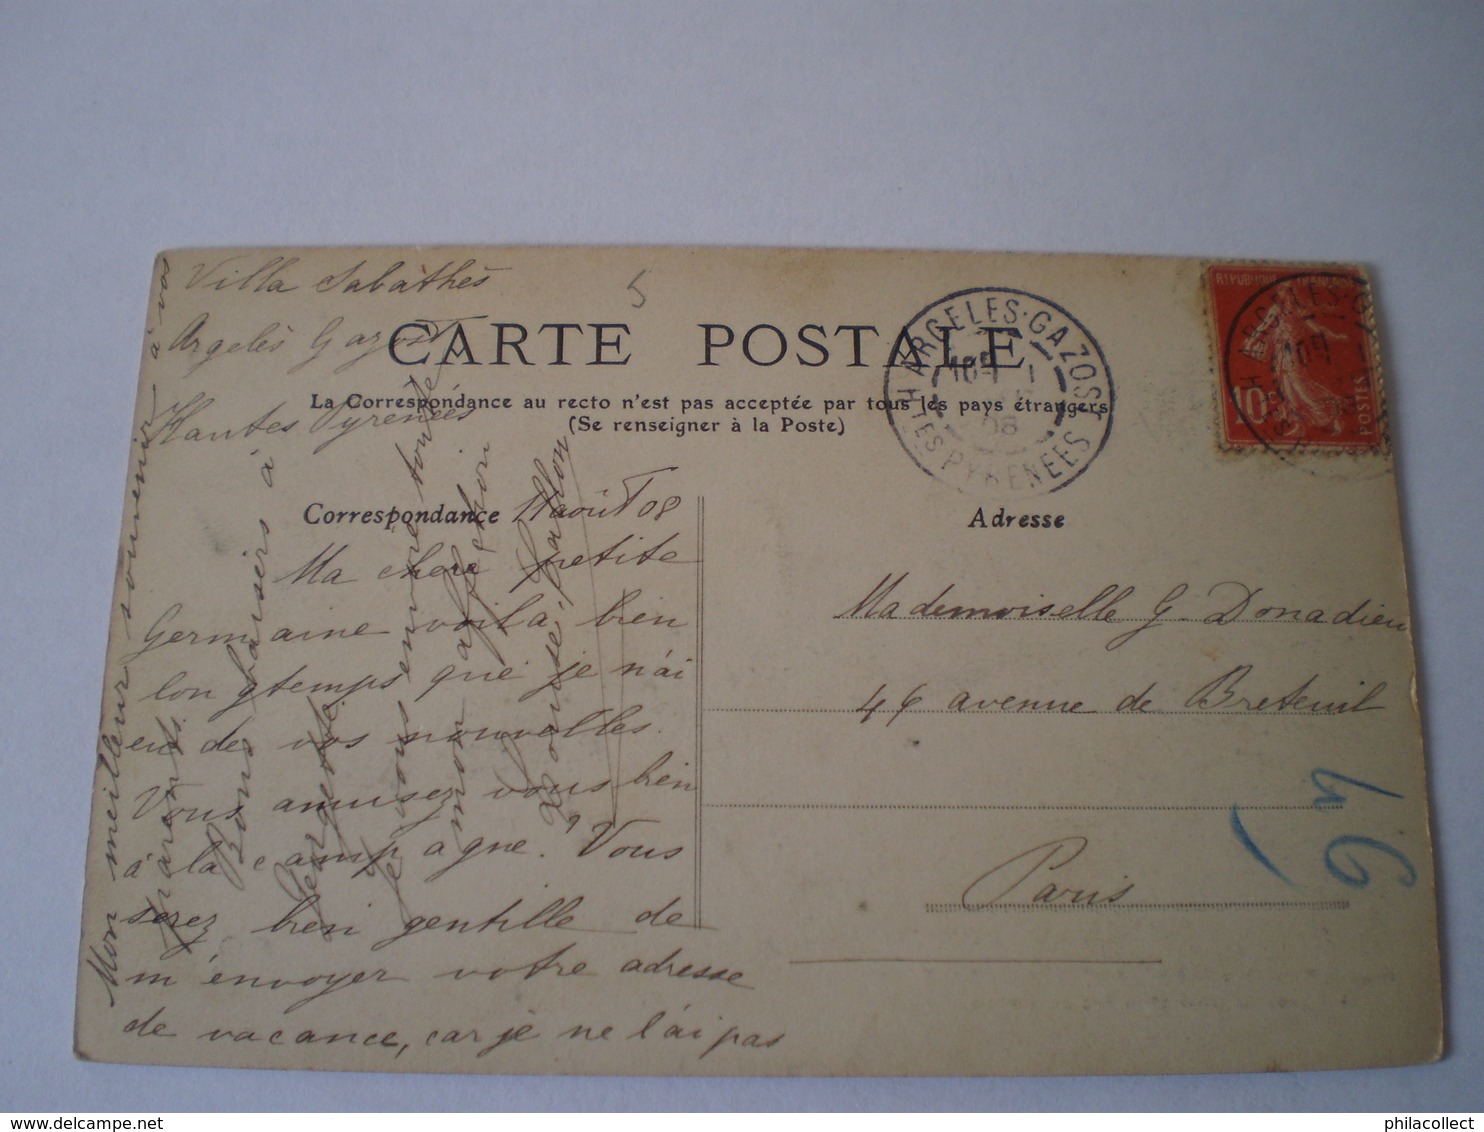 Villa Sabathès
Argelès Gazost
Hautes Pyrénées
5
CARTE POSTALE
La Correspondance au recto n'est pas acceptée par tous les pays étrangers
(Se renseigner à la Poste)
ARGELES-GAZOST
08
HTES PYRENEES
REPUBLIQUE FRANÇAISE
10
POSTES
ARGELES-GA
Correspondance
août 08
Adresse
Ma chere petite
Germaine voila, bien
longtemps que je n'ai
eu des vos nouvelles.
Vous amusez vous bien
à la campagne? Vous
serez bien gentille de
m'envoyer votre adresse
de vacance, car je ne l'ai pas
Mon meilleur souvenir à vos
parents.
Bons baisers à
Georgette.
Je vous envoie toute
mon affection
Louise
Mademoiselle G. Donadieu
46 avenue de Breteuil
Paris
46
philacollect